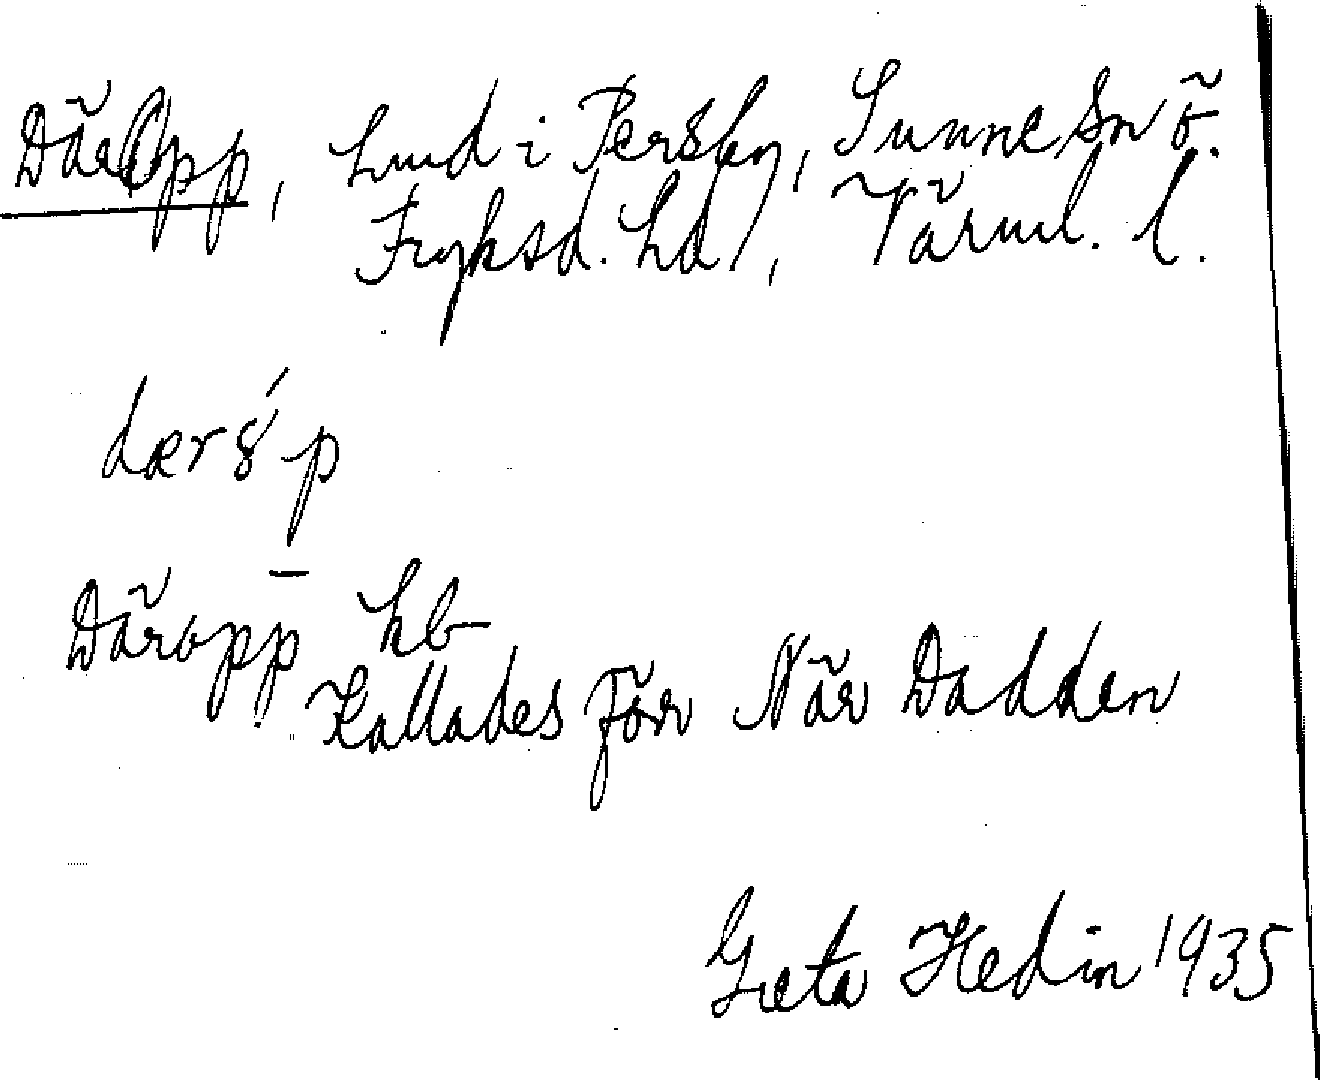 DärOpp, Lund i Persby, Sunne sn ö.
Fryksd. hd, Värml. l.
dær8́p
Däropp kb
Kallades förr När Dadden
Greta Hedin 1935